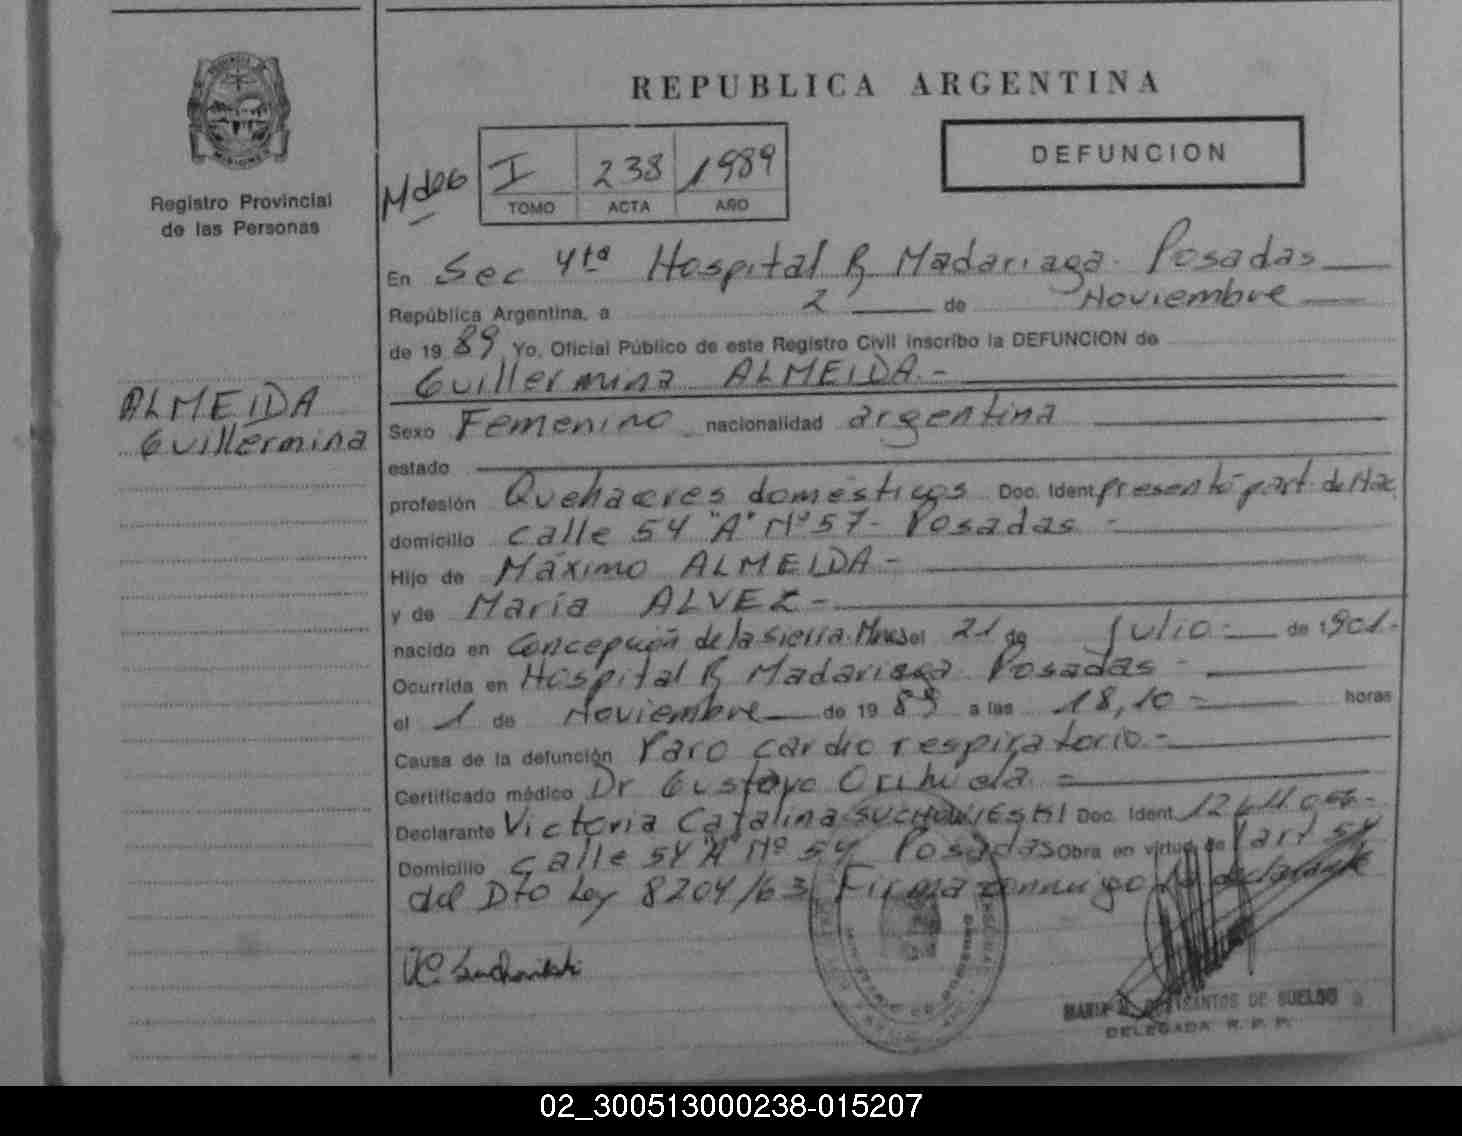 REPUBLICA ARGENTINA
MISIONES
Registro Provincial
de las Personas
DEFUNCION
I 238 1989
TOMO ACTA AÑO
En Sec 4ta Hospital R Madariaga. Posadas
República Argentina, a 2 de Noviembre
de 1989 Yo, Oficial Público de este Registro Civil inscribo la DEFUNCION de
Guillermina ALMEIDA.-
ALMEIDA
Guillermina
Sexo Femenino nacionalidad argentina
estado
profesión Quehaceres domésticos Doc. Ident. presentó part. de Nac
domicilio calle 54 "A" Nº 57- Posadas -
Hijo de Máximo ALMEIDA -
y de María ALVEZ -
nacido en Concepción de la Sierra. el 21 de Julio - de 1901.-
Ocurrida en Hospital R Madariaga Posadas -
el 1 de Noviembre de 1989 a las 18,10 - horas
Causa de la defunción Paro cardio respiratorio.-
Certificado médico Dr Gustavo Orihuela -
Declarante Victoria Catalina SUCHOWIESKI Doc. Ident.
Domicilio calle 54 "A" Nº 54 Posadas Obra en virtud de art 54
del Dto Ley 8204/63. Firma conmigo la declarante
DELEGADA R. P. P.
02_300513000238-015207